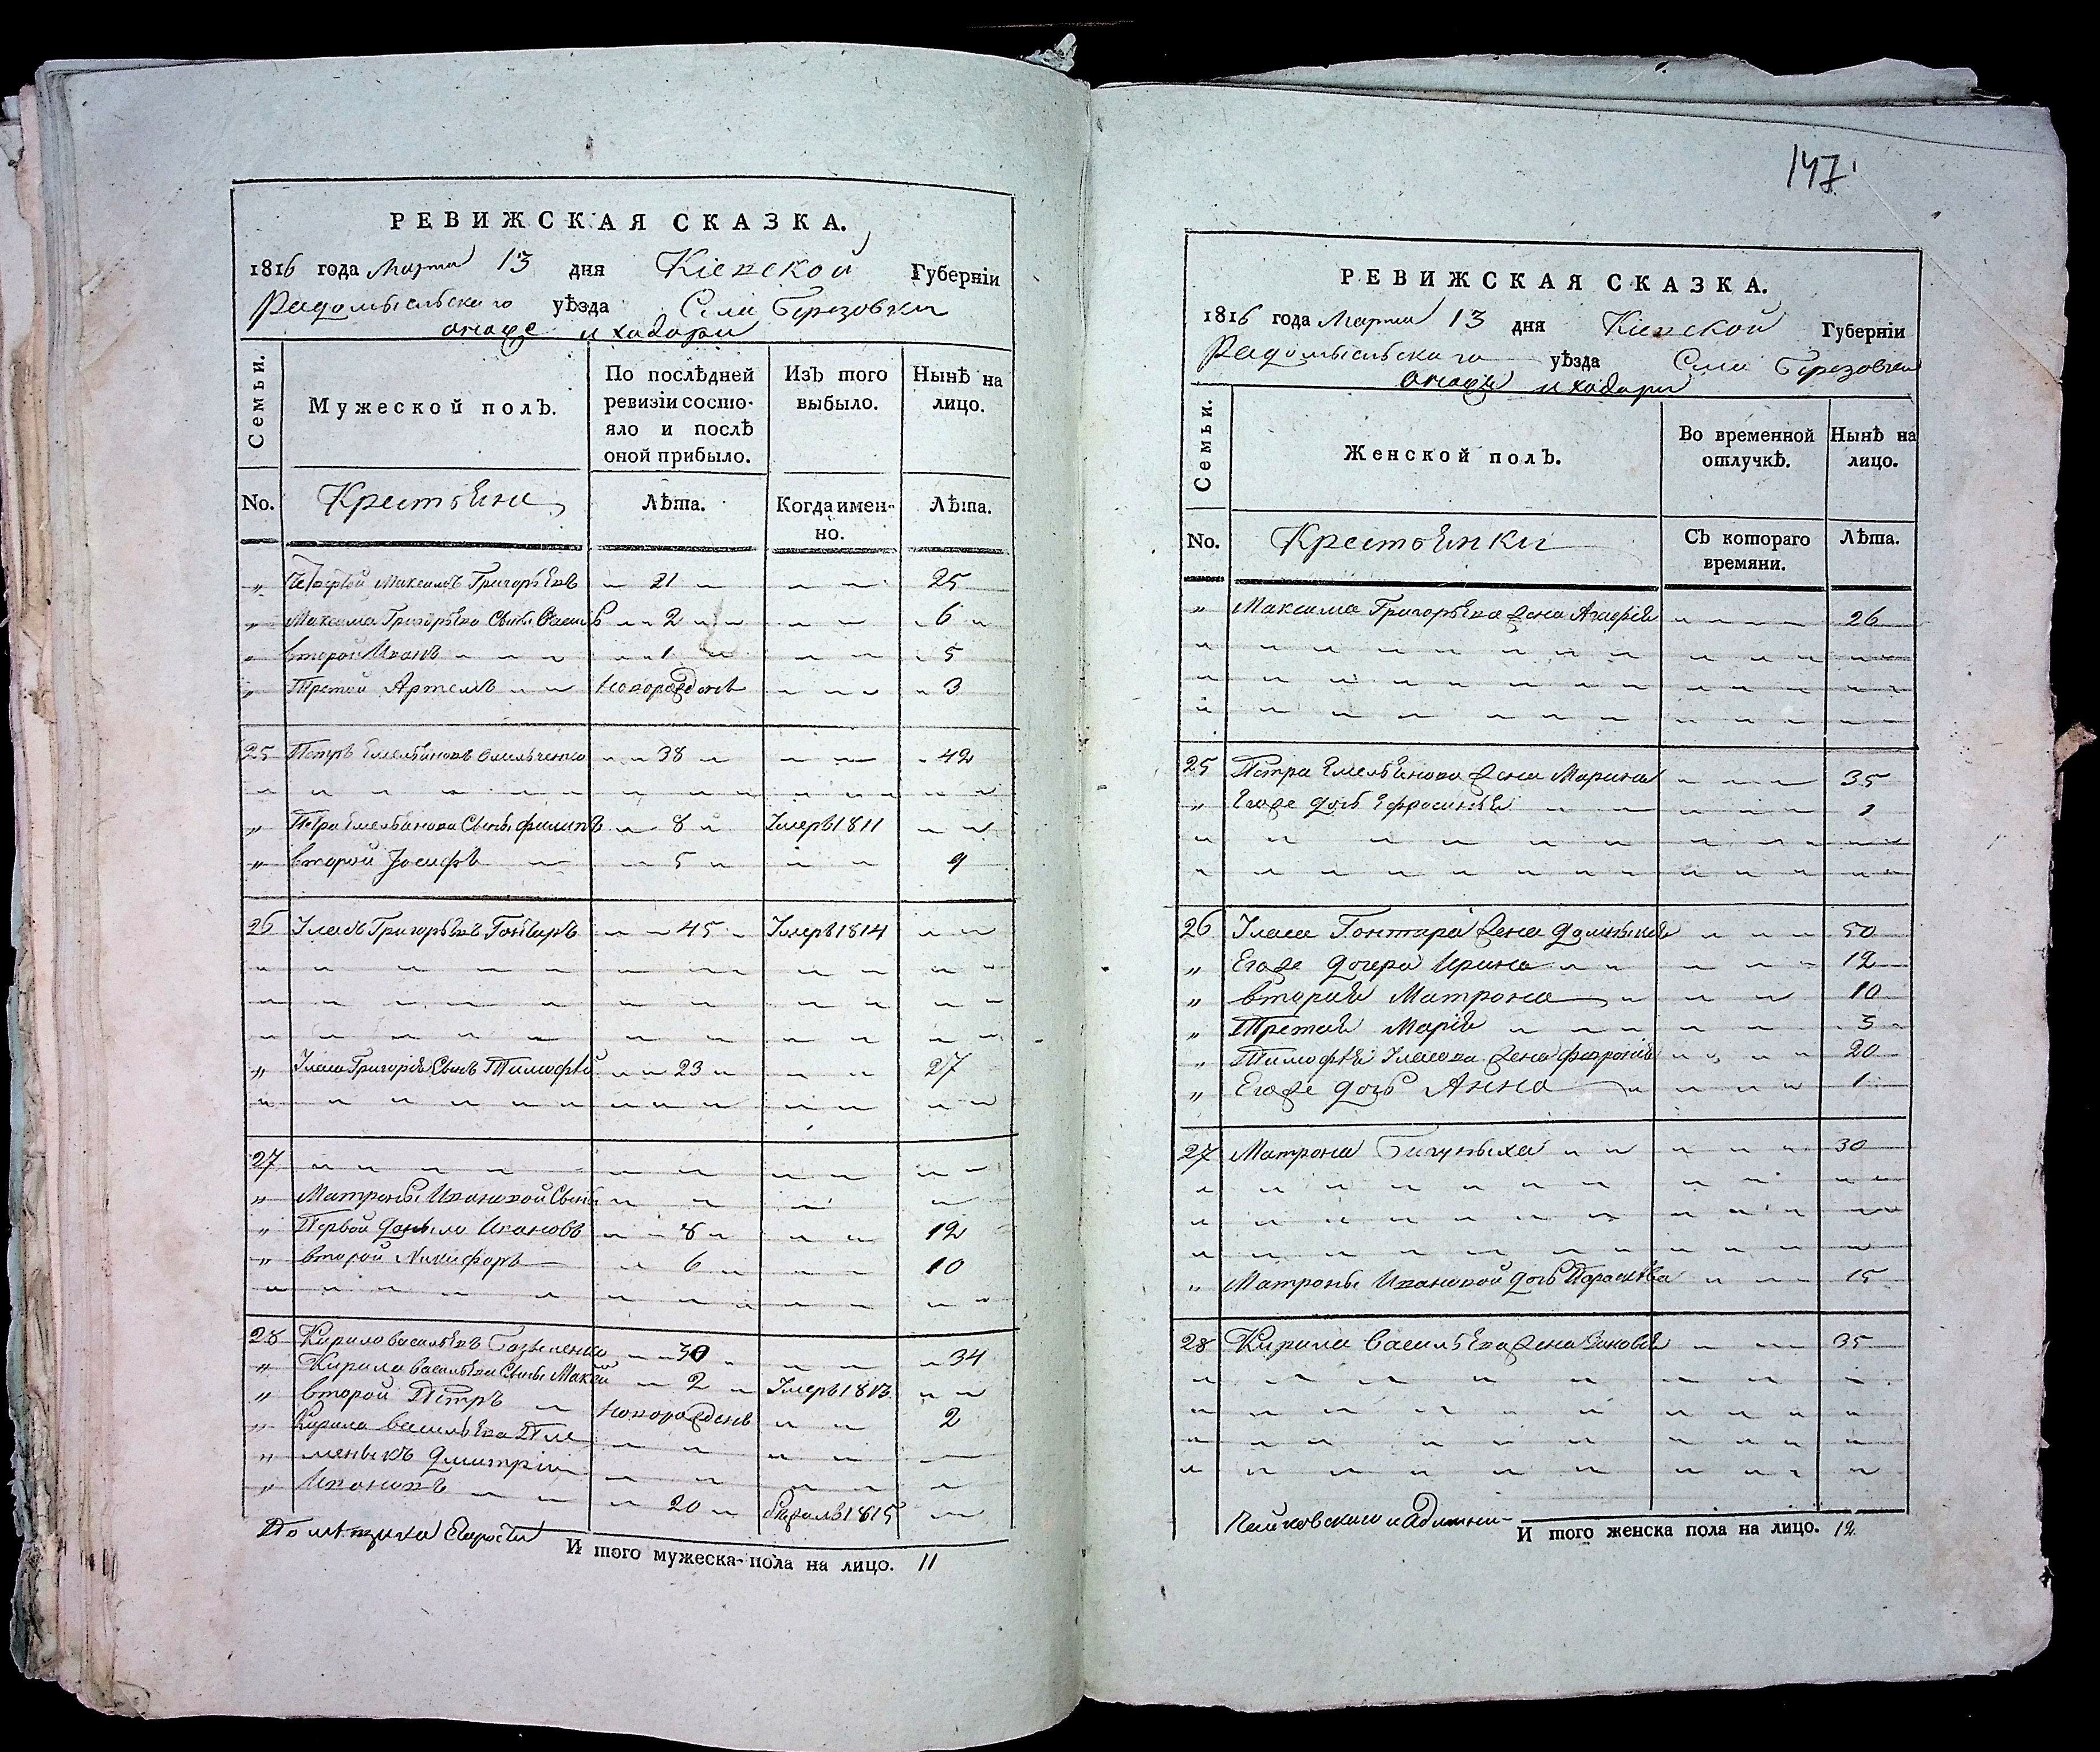 РЕВИЖСКАЯ СКАЗКА.
1816 года Марта 13 дня Кіевской Губерніи
Радомысльскаго уѣзда Села Березовки
онаже и ходоры
Семьи. Мужеской полъ. По послѣдней ревизіи состояло и послѣ оной прибыло. Изъ того выбыло. Нынѣ на лицо.
No. Крестьяне Лѣта. Когда именно. Лѣта.
„ Четвертой Максимъ Григорьевъ 21 25
„ Максима Григорьева Сыны 2 6
„ второй Иванъ 1 5
„ Третой Артемъ новорожденъ 3
25 Петръ Емельяновъ Омельченко 38 42
„ Петра Емельянова Сыны Филипъ 8 Умеръ 1811
„ второй Іосифъ 5 9
26 Уласъ Григорьевъ Гончаръ 45 Умеръ 1814
„ Уласа Григорія Сынъ Тимофѣй 23 27
27
„ Матроны Ивановой Сыны
„ Первой Данило Ивановъ 8 12
„ второй Никифоръ 6 10
28 Кирило васильевъ 30 34
„ Кирила васильева Сыны 2 Умеръ 1813
„ второй Петръ новорожденъ 2
„ Кирила васильева Пле
„ меныкъ Дмитрій
„ Ивановъ 20 бѣжалъ 1815
Помѣщика Старосты
И того мужеска пола на лицо. 11
147
РЕВИЖСКАЯ СКАЗКА.
1816 года Марта 13 дня Кіевской Губерніи
Радомысльскаго уѣзда Села Березовки
онаже и ходоры
Семьи. Женской полъ. Во временной отлучкѣ. Нынѣ на лицо.
No. Крестьянки Съ котораго времяни. Лѣта.
„ Максима Григорьева жена Агафія 26
25 Петра Емельянова жена Марина 35
„ Егоже дочь Ефросинья 1
26 Уласа Гончара жена 50
„ Егоже дочери Ирина 12
„ вторая Матрона 10
„ Третая Марія 3
„ Тимофѣя Уласова жена Феронія 20
„ Егоже дочь Анна 1
27 Матрона 30
„ Матроны Ивановой дочь Параскева 15
28 Кирила васильева жена Зиновья 35
И того женска пола на лицо. 12